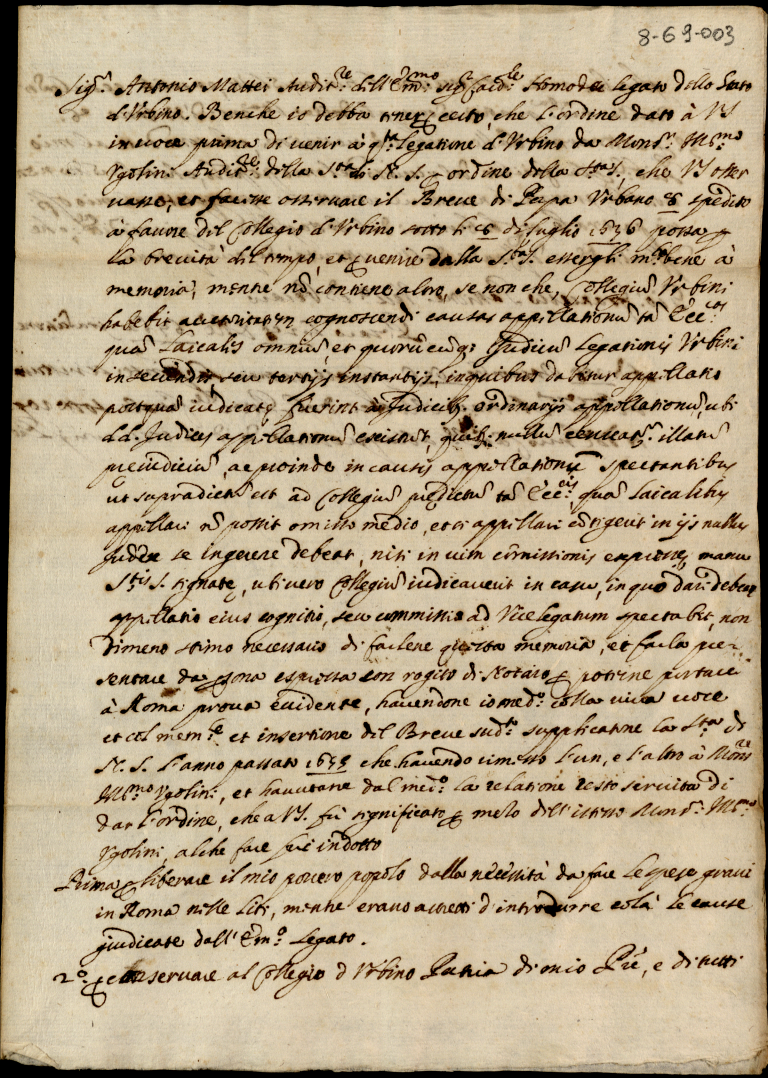 8-69-003
Sig.r Antonio Mattei Audit.re dell'Em.mo Sig.r Card.le Homodei legato dello Stato
d'Urbino. Benche io debba tener p certo, che l'ordine dato à VS
in voce prima di venir à q.ta legatione d'Urbino da Mons.r Ill.mo
Ugolini Audit.re della S.tà di N. S. p ordine della S.tà S. che VS osser
vasse, et facesse osservare il Breve di Papa Urbano 8 spedito
à favore del Collegio d'Urbino sotto li 8 di luglio 1636 possa p
la brevità del tempo, et p venire dalla S.tà S. essergli m.to bene à
memoria, mentre nõ contiene altro, se non che, Collegiũ Urbini
habebit auctoritatem cognoscendi causas appellationũ tã Ecc.cas
quã Laicalis omniũ, et quorũcũq; Judicũ legationis Urbini
in secundis, seu tertijs instantijs, in quibus dabitur appellatio
postquã iudicatę fuerint à Judicib; ordinarijs appellationũ, ubi
d.d. Judices appellationũ existũt, quib; nullũ censeat.r illatũ
preiudiciũ, ac proinde in causis appellationũ spectantibus
ut supradictũ est ad Collegiũ predictũ tã Ecc.cis, quã Laicalibus
appellari nõ possit omisso medio, et si appellari cõtigerit in ijs nullus
Judex se ingerere debeat, nisi in vim cõmissionis expressę manu
S.tis S. signatę, ubi vero Collegiũ iudicaverit in casu, in quo dari debeat
appellatio eius cognitio, seu commissio ad Vicelegatum spectabit, non
dimeno stimo necessario di farlene questa memoria, et farla pre-
sentare da psona espressa con rogito di Notaro p poterne portare
à Roma prova evidente, havendone io med.o colla viva voce
et col mem.le et insertione del Breve sud.to supplicatone la S.tà di
N. S. l'anno passato 1655 che havendo rimesso l'un, e l'altro à Mons.re
Ill.mo Ugolini, et havutane dal med.o la relatione restò servita di
dar l'ordine, che a VS. fù significato p mezo dell'istesso Mons.r Ill.mo
Ugolini, al che fare fui indotto
Prima p liberare il mio povero popolo dalla necessità da fare le spese gravi
in Roma nelle liti, mentre erano astretti d'introdurre colà le cause
giudicate dall'Em.o Legato.
2.o p conservare al Collegio d Urbino Patria di mio Prẽ, e di tutti